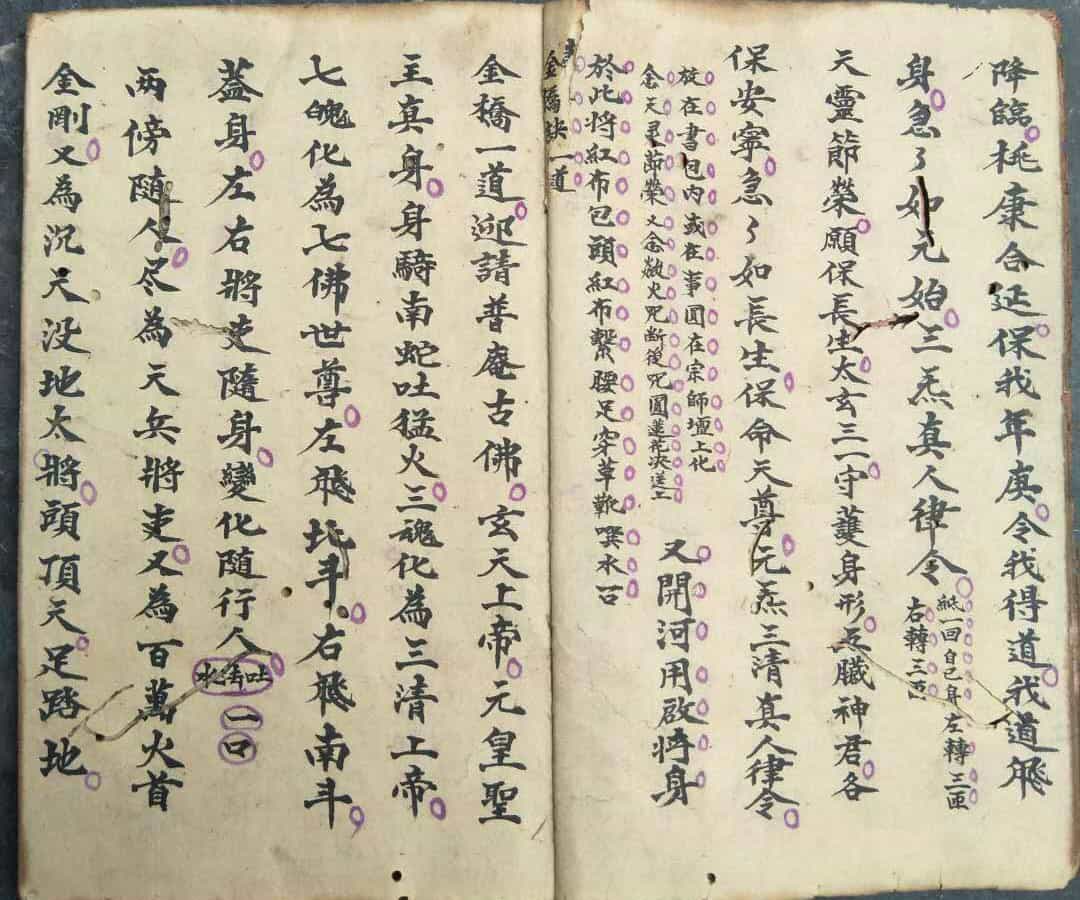 降臨桃康合延保我年庚令我得道我道飛
身急々如元始三炁真人律令
紙一回自己身左轉三匝
右轉三匝
天靈節榮願保長生太玄三一守護身形五臟神君各
保安寧急々如長生保命天尊元炁三清真人律令
椗在書包內或在事圓在宗師壇上化
念天灵節榮又念敕火咒断後咒圓蓮花决送工
又開河用啟将身
於此将紅布包頭紅布繫腰足穿草靴噀水一口
金橋訣一道
金橋一道迎請普庵古佛玄天上帝元皇聖
主真身身騎南蛇吐猛火三魂化為三清上帝
七魄化為七佛世尊左飛北斗右飛南斗
蓋身左右將吏隨身變化随行人吐淨水一口
兩傍随人尽為天兵將吏又為百萬火首
金剛又為沉天没地太將頭頂天足踏地